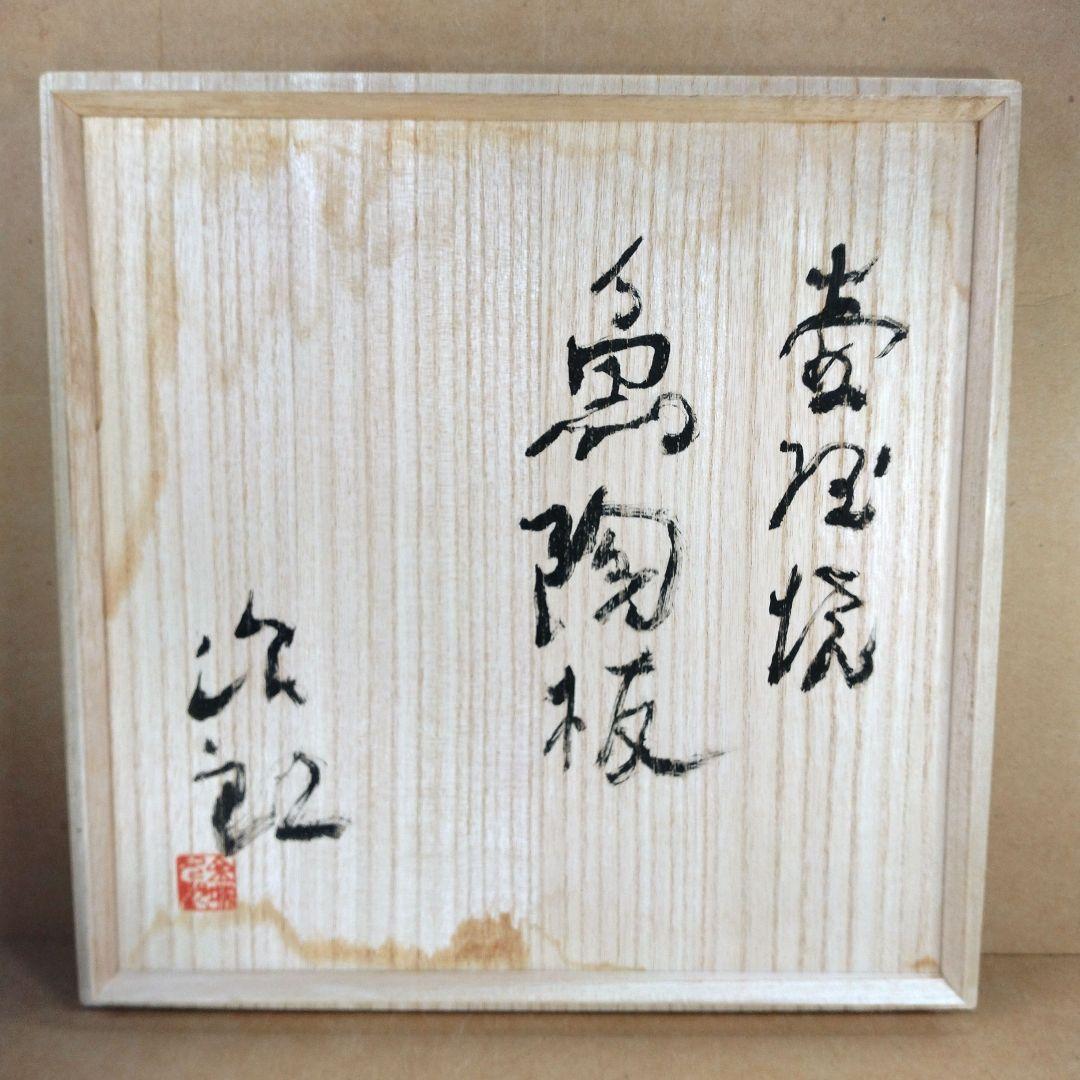 壺屋焼
魚陶板
次郎